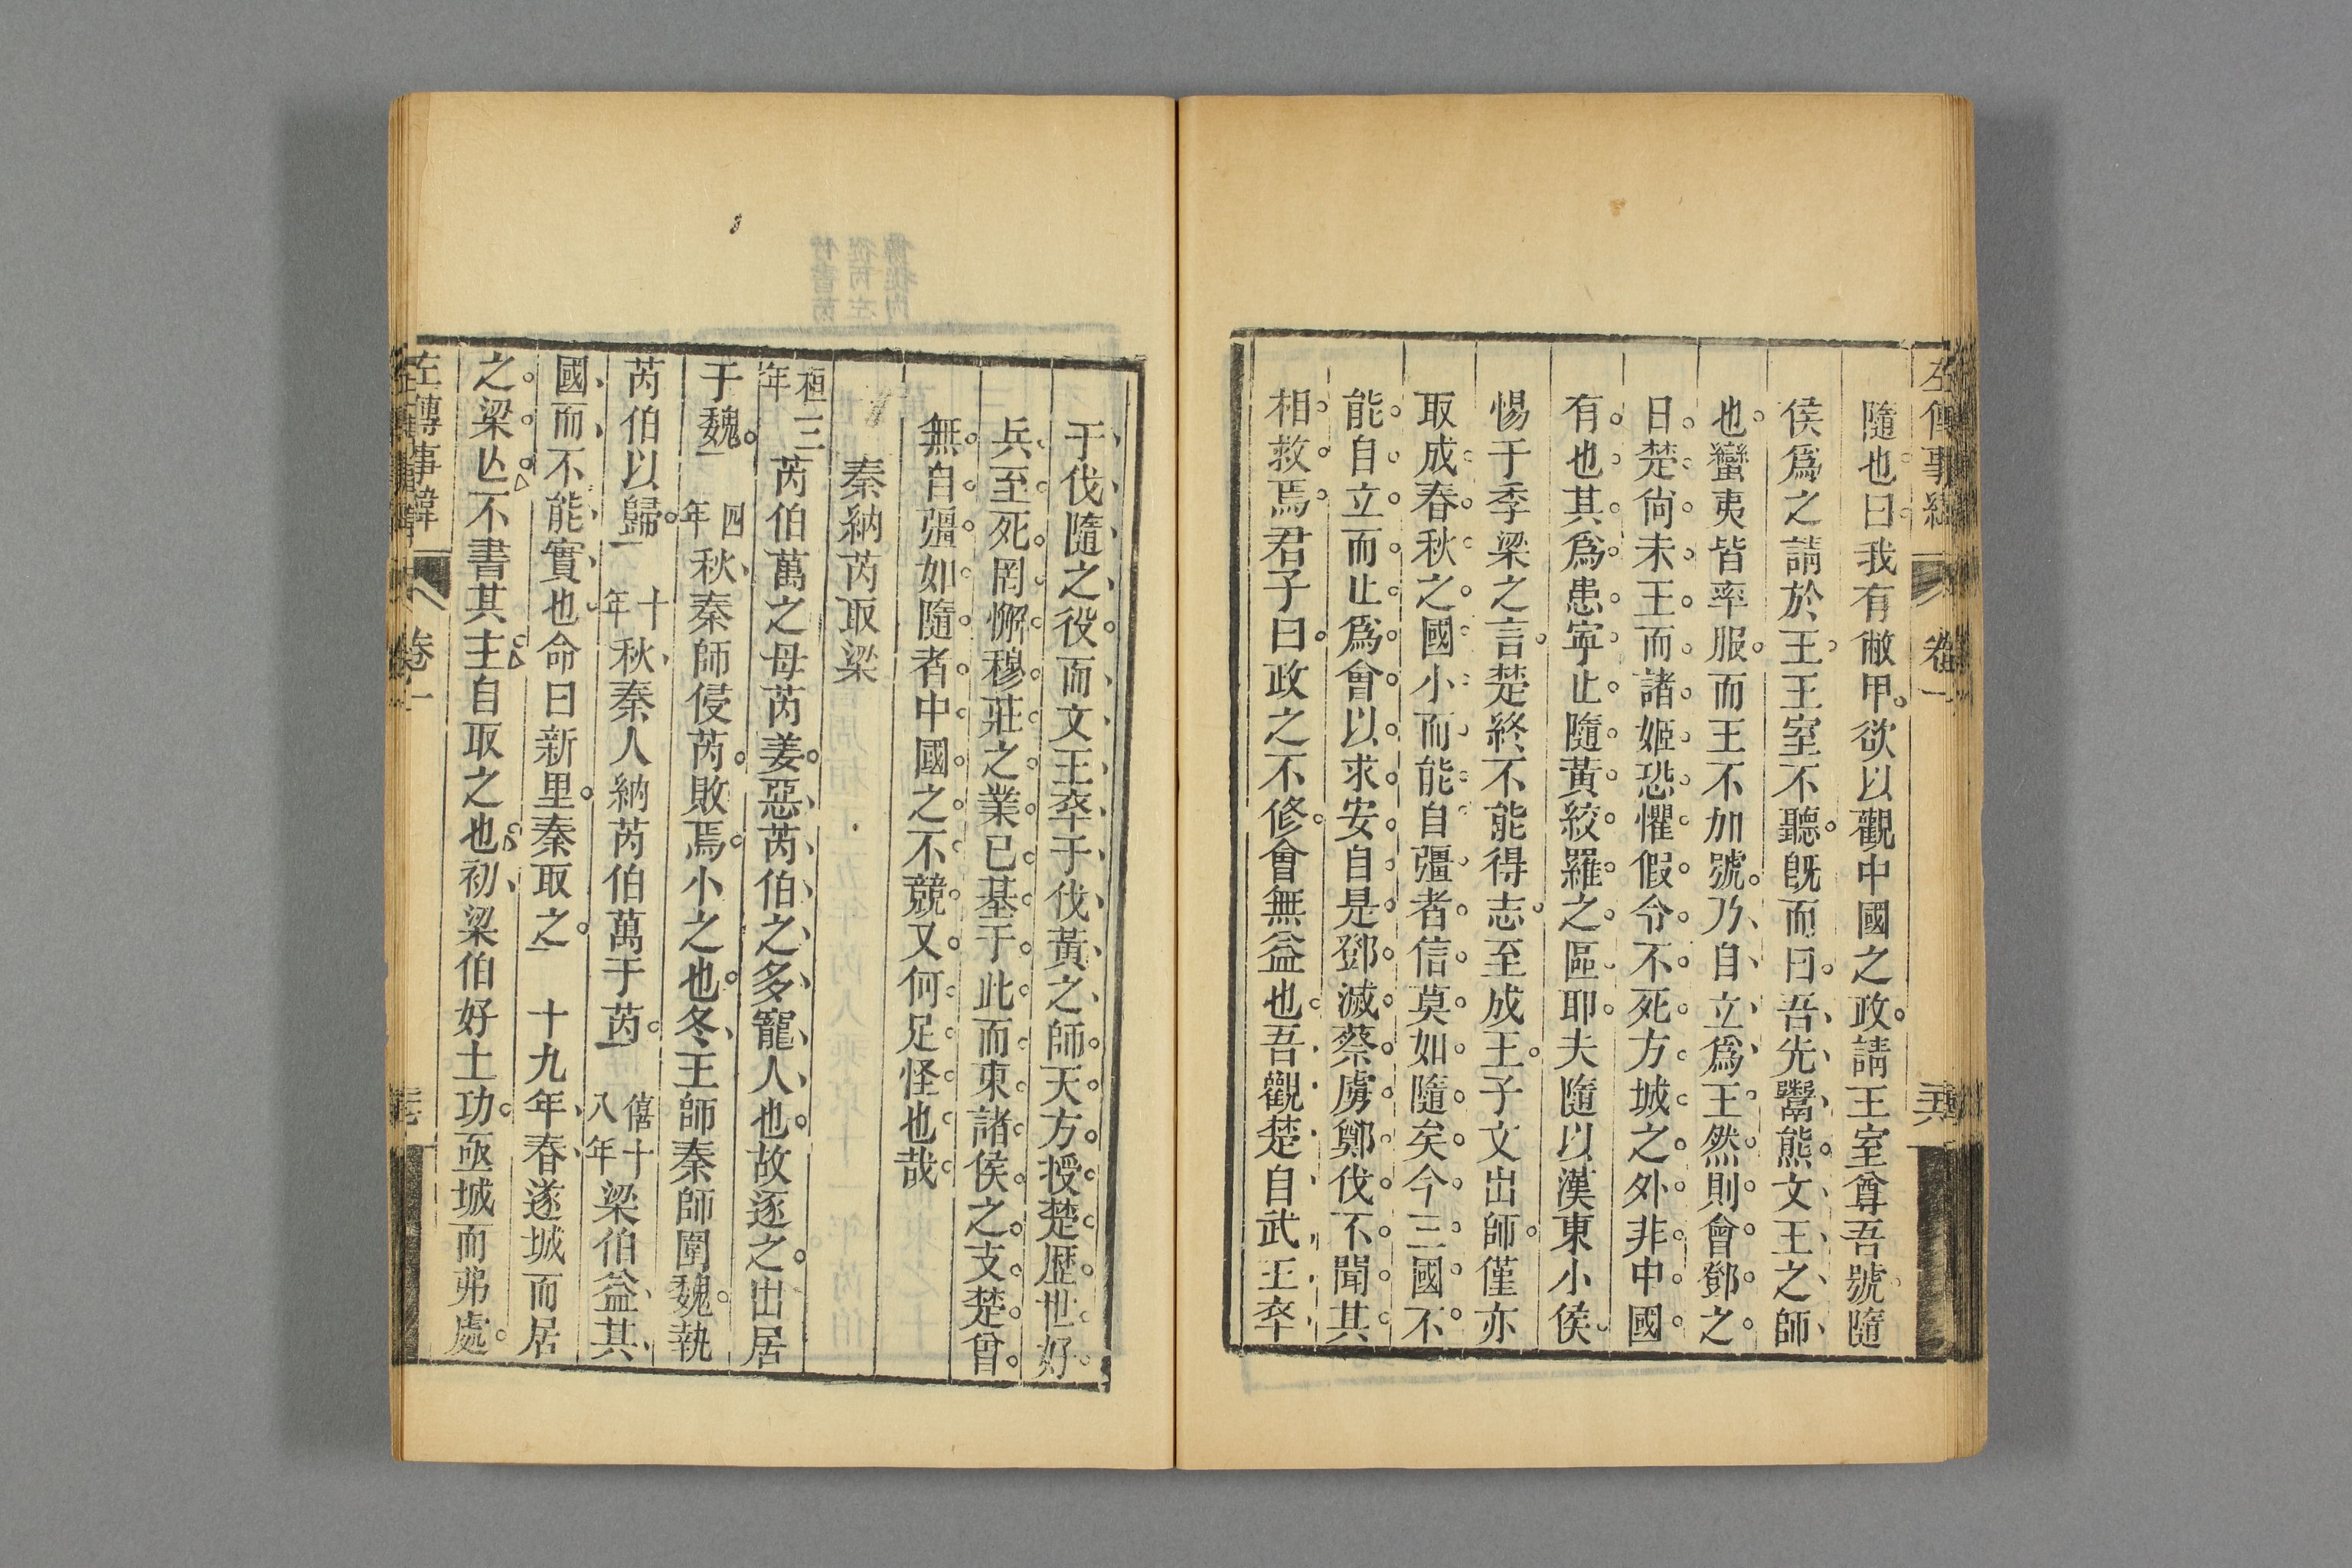 左傳事緯 卷一
隨也曰我有敝甲欲以觀中國之政請王室尊吾號隨
侯爲之請於王王室不聽既而曰吾先鬻熊文王之師
也蠻夷皆率服而王不加號乃自立爲王然則會鄧之
日楚尙未王而諸姬恐懼假令不死方城之外非中國
有也其爲患寧止隨黃絞羅之區耶夫隨以漢東小侯
惕于季梁之言楚終不能得志至成王子文出師僅亦
取成春秋之國小而能自彊者信莫如隨矣今三國不
能自立而止爲會以求安自是鄧滅蔡虜鄭伐不聞其
相救焉君子曰政之不修會無益也吾觀楚自武王卒
于伐隨之役而文王卒于伐黃之師天方授楚歷世好
兵至死罔懈穆莊之業已基于此而東諸侯之支楚曾
無自彊如隨者中國之不競又何足怪也哉
秦納芮取梁
桓三年芮伯萬之母芮姜惡芮伯之多寵人也故逐之出居
于魏 四年秋秦師侵芮敗焉小之也冬王師秦師圍魏執
芮伯以歸 十年秋秦人納芮伯萬于芮 僖十八年梁伯益其
國而不能實也命曰新里秦取之 十九年春遂城而居
之梁亾不書其主自取之也初梁伯好土功亟城而弗處
左傳事緯 卷一